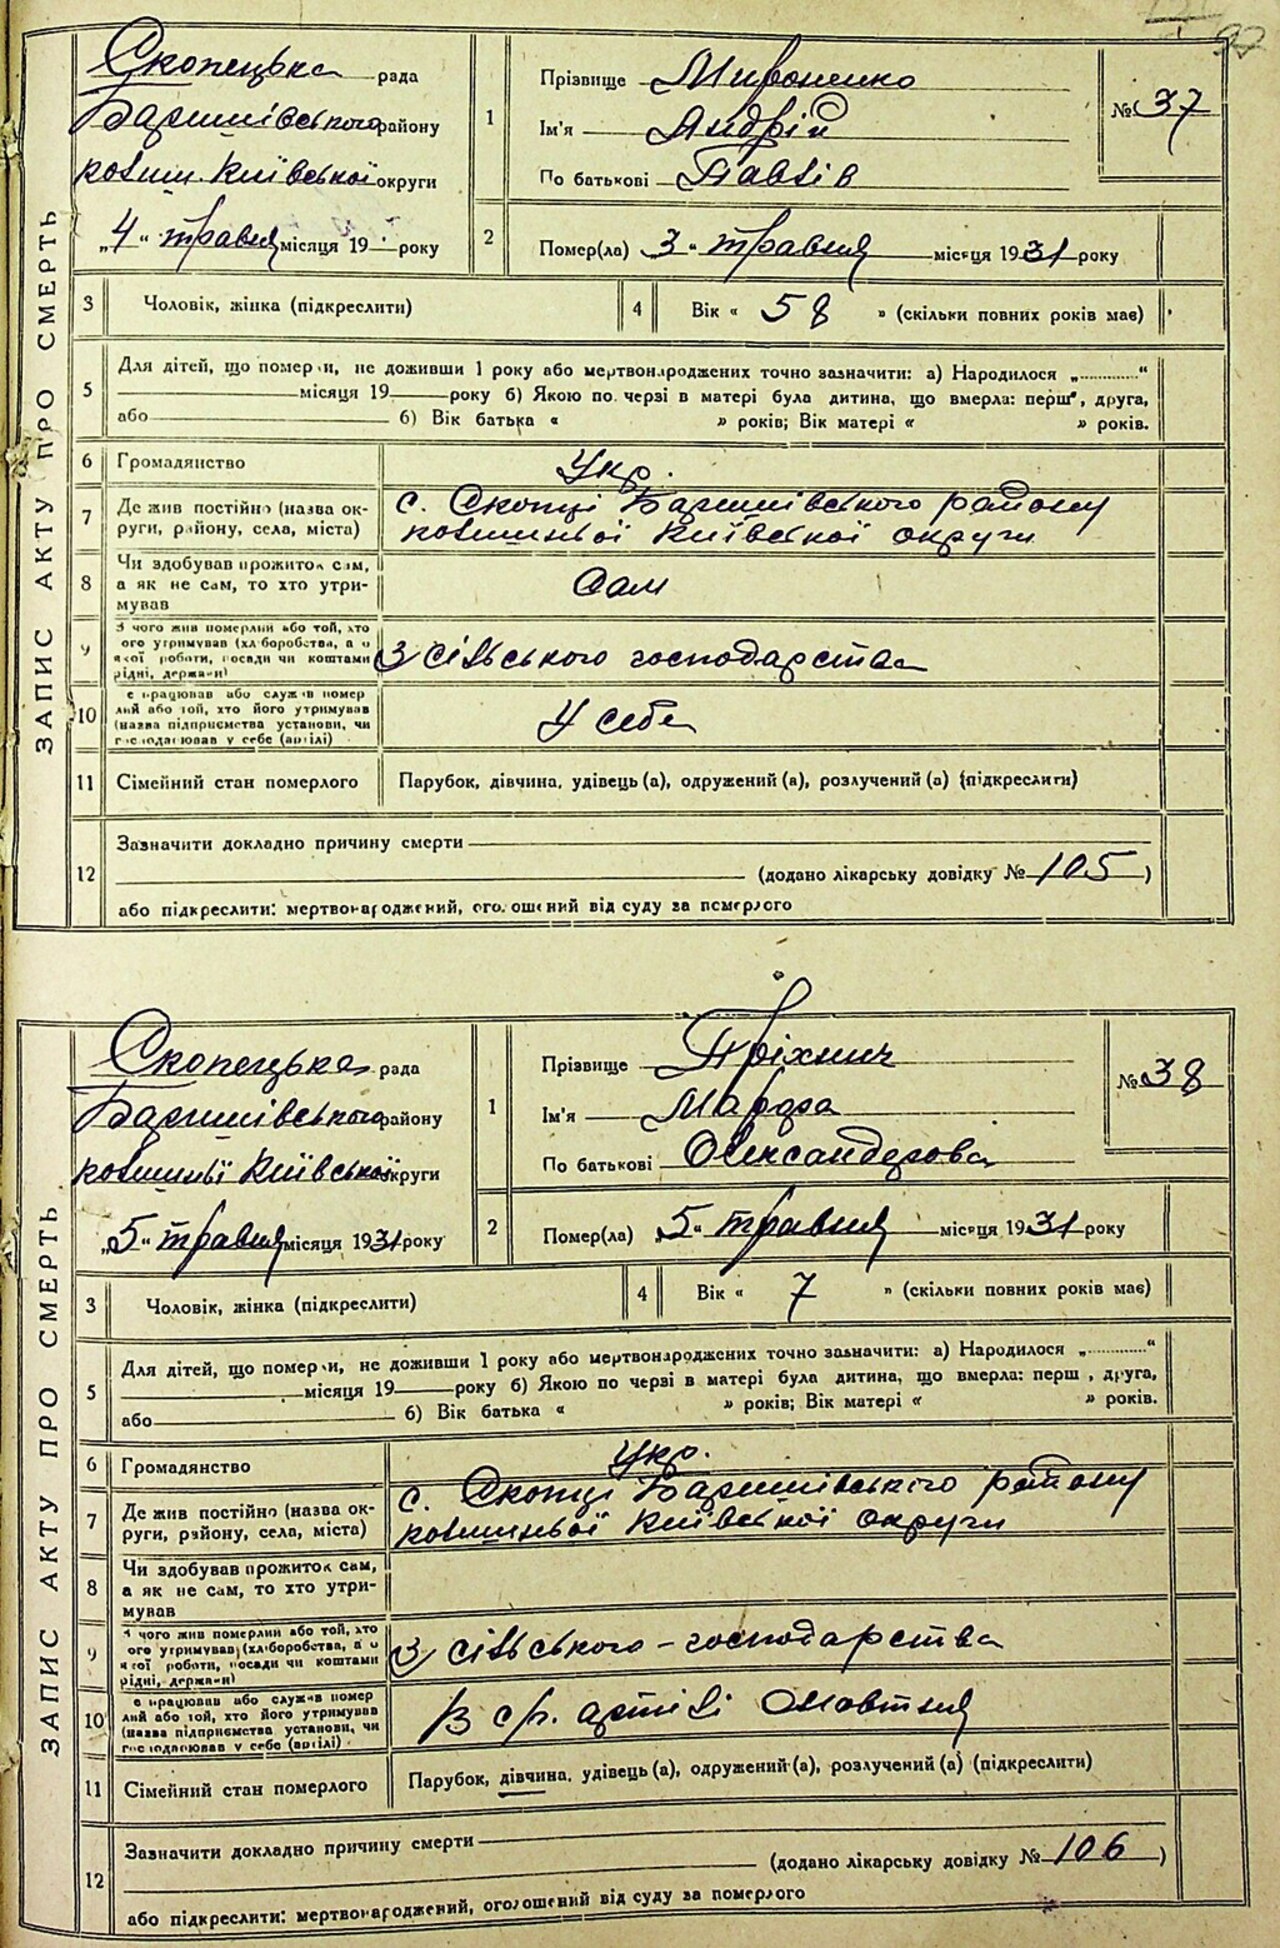 97
ЗАПИС АКТУ ПРО СМЕРТЬ
Скопецька рада
Баришівського району
колиш. Київської округи
„4“ травня місяця 19 року
1
Прізвище Мироненко
Ім'я Андрій
По батькові Павлів
№ 37
2
Помер(ла) 3 „ травня місяця 1931 року
3
Чоловік, жінка (підкреслити)
4
Вік « 58 » (скільки повних років має)
5
Для дітей, що померли, не доживши 1 року або мертвонароджених точно зазначити: а) Народилося „............“
місяця 19 року б) Якою по черзі в матері була дитина, що вмерла: перша, друга,
або б) Вік батька « » років; Вік матері « » років.
6
Громадянство
Укр.
7
Де жив постійно (назва ок-
руги, району, села, міста)
с. Скопці Баришівського району
колишньої Київської округи
8
Чи здобував прожиток сам,
а як не сам, то хто утри-
мував
Сам
9
З чого жив померлий або той, хто
ого утримував (хліборобства, а о
якої роботи, посади чи коштами
рідні, держави)
З сільського господарства
10
е працював або служив помер
лий або той, хто його утримував
(назва підприємства установи, чи
господарював у себе (артілі)
У себе
11
Сімейний стан померлого
Парубок, дівчина, удівець (а), одружений (а), розлучений (а) (підкреслити)
12
Зазначити докладно причину смерти
(додано лікарську довідку № 105)
або підкреслити: мертвонароджений, оголошений від суду за померлого
ЗАПИС АКТУ ПРО СМЕРТЬ
Скопецька рада
Баришівського району
колишньї Київської округи
„5“ травня місяця 1931 року
1
Прізвище Тріхнич
Ім'я Марфа
По батькові Олександрова
№ 38
2
Помер(ла) „5“ травня місяця 1931 року
3
Чоловік, жінка (підкреслити)
4
Вік « 7 » (скільки повних років має)
5
Для дітей, що померли, не доживши 1 року або мертвонароджених точно зазначити: а) Народилося „............“
місяця 19 року б) Якою по черзі в матері була дитина, що вмерла: перш , друга,
або б) Вік батька « » років; Вік матері « » років.
6
Громадянство
Укр.
7
Де жив постійно (назва ок-
руги, району, села, міста)
с. Скопці Баришівського району
колишньої Київської округи
8
Чи здобував прожиток сам,
а як не сам, то хто утри-
мував
9
З чого жив померлий або той, хто
ого утримував (хліборобства, а о
якої роботи, посади чи коштами
рідні, держави)
З сільського-господарства
10
е працював або служив помер
лий або той, хто його утримував
(назва підприємства установи, чи
господарював у себе (артілі)
В с/г. артілі Жовтня
11
Сімейний стан померлого
Парубок, дівчина, удівець (а), одружений (а), розлучений (а) (підкреслити)
12
Зазначити докладно причину смерти
(додано лікарську довідку № 106)
або підкреслити: мертвонароджений, оголошений від суду за померлого